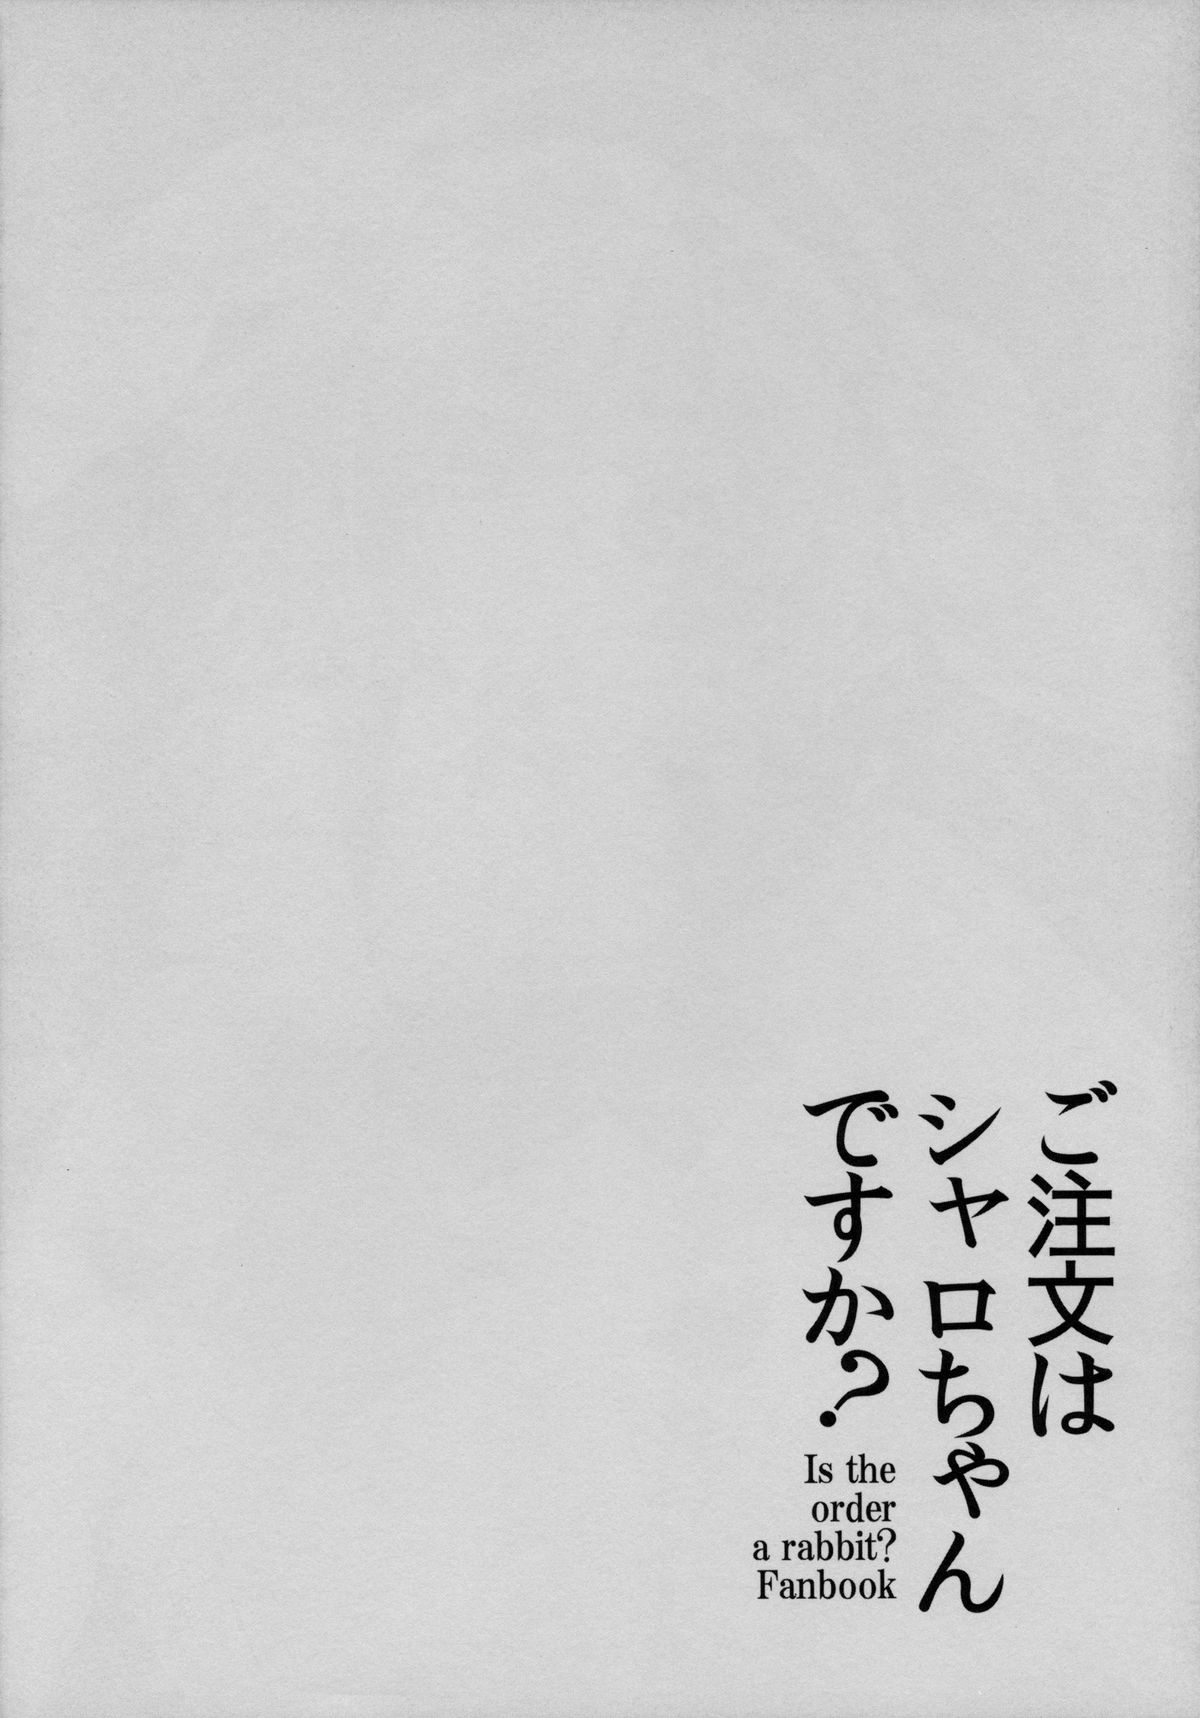 ご注文は
シャロちゃん
ですか?
Is the
order
a rabbit?
Fanbook